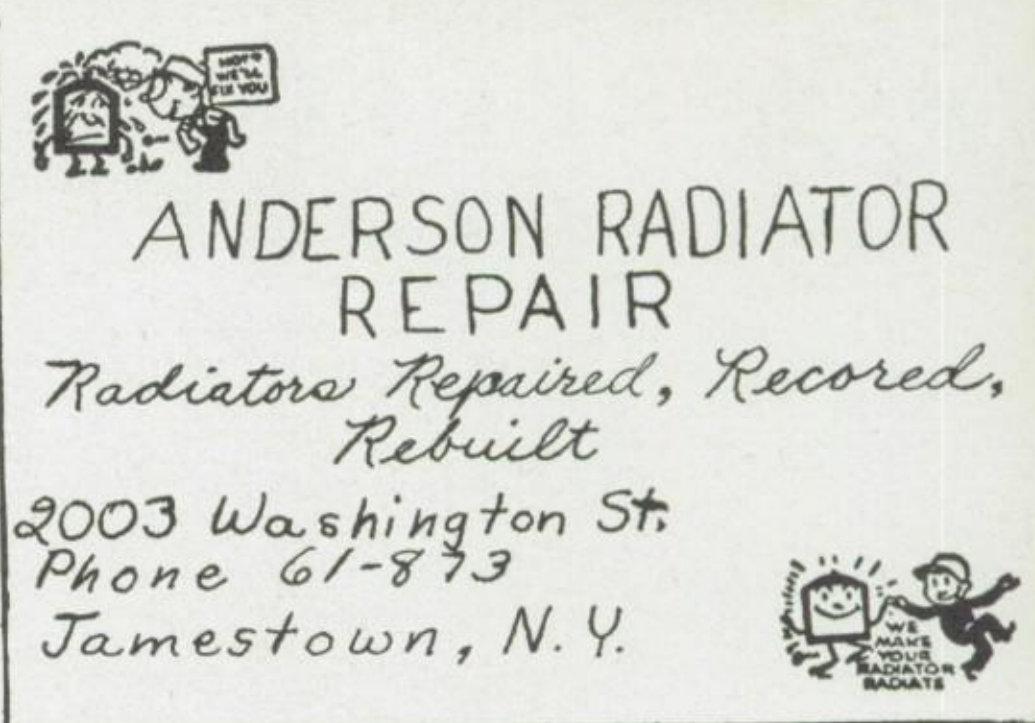 HOT?
WE'LL
FIX YOU
ANDERSON RADIATOR
REPAIR
Radiators Repaired, Recored,
Rebuilt
2003 Washington St.
Phone 61-873
Jamestown, N.Y.
WE
MAKE
YOUR
RADIATOR
RADIATE